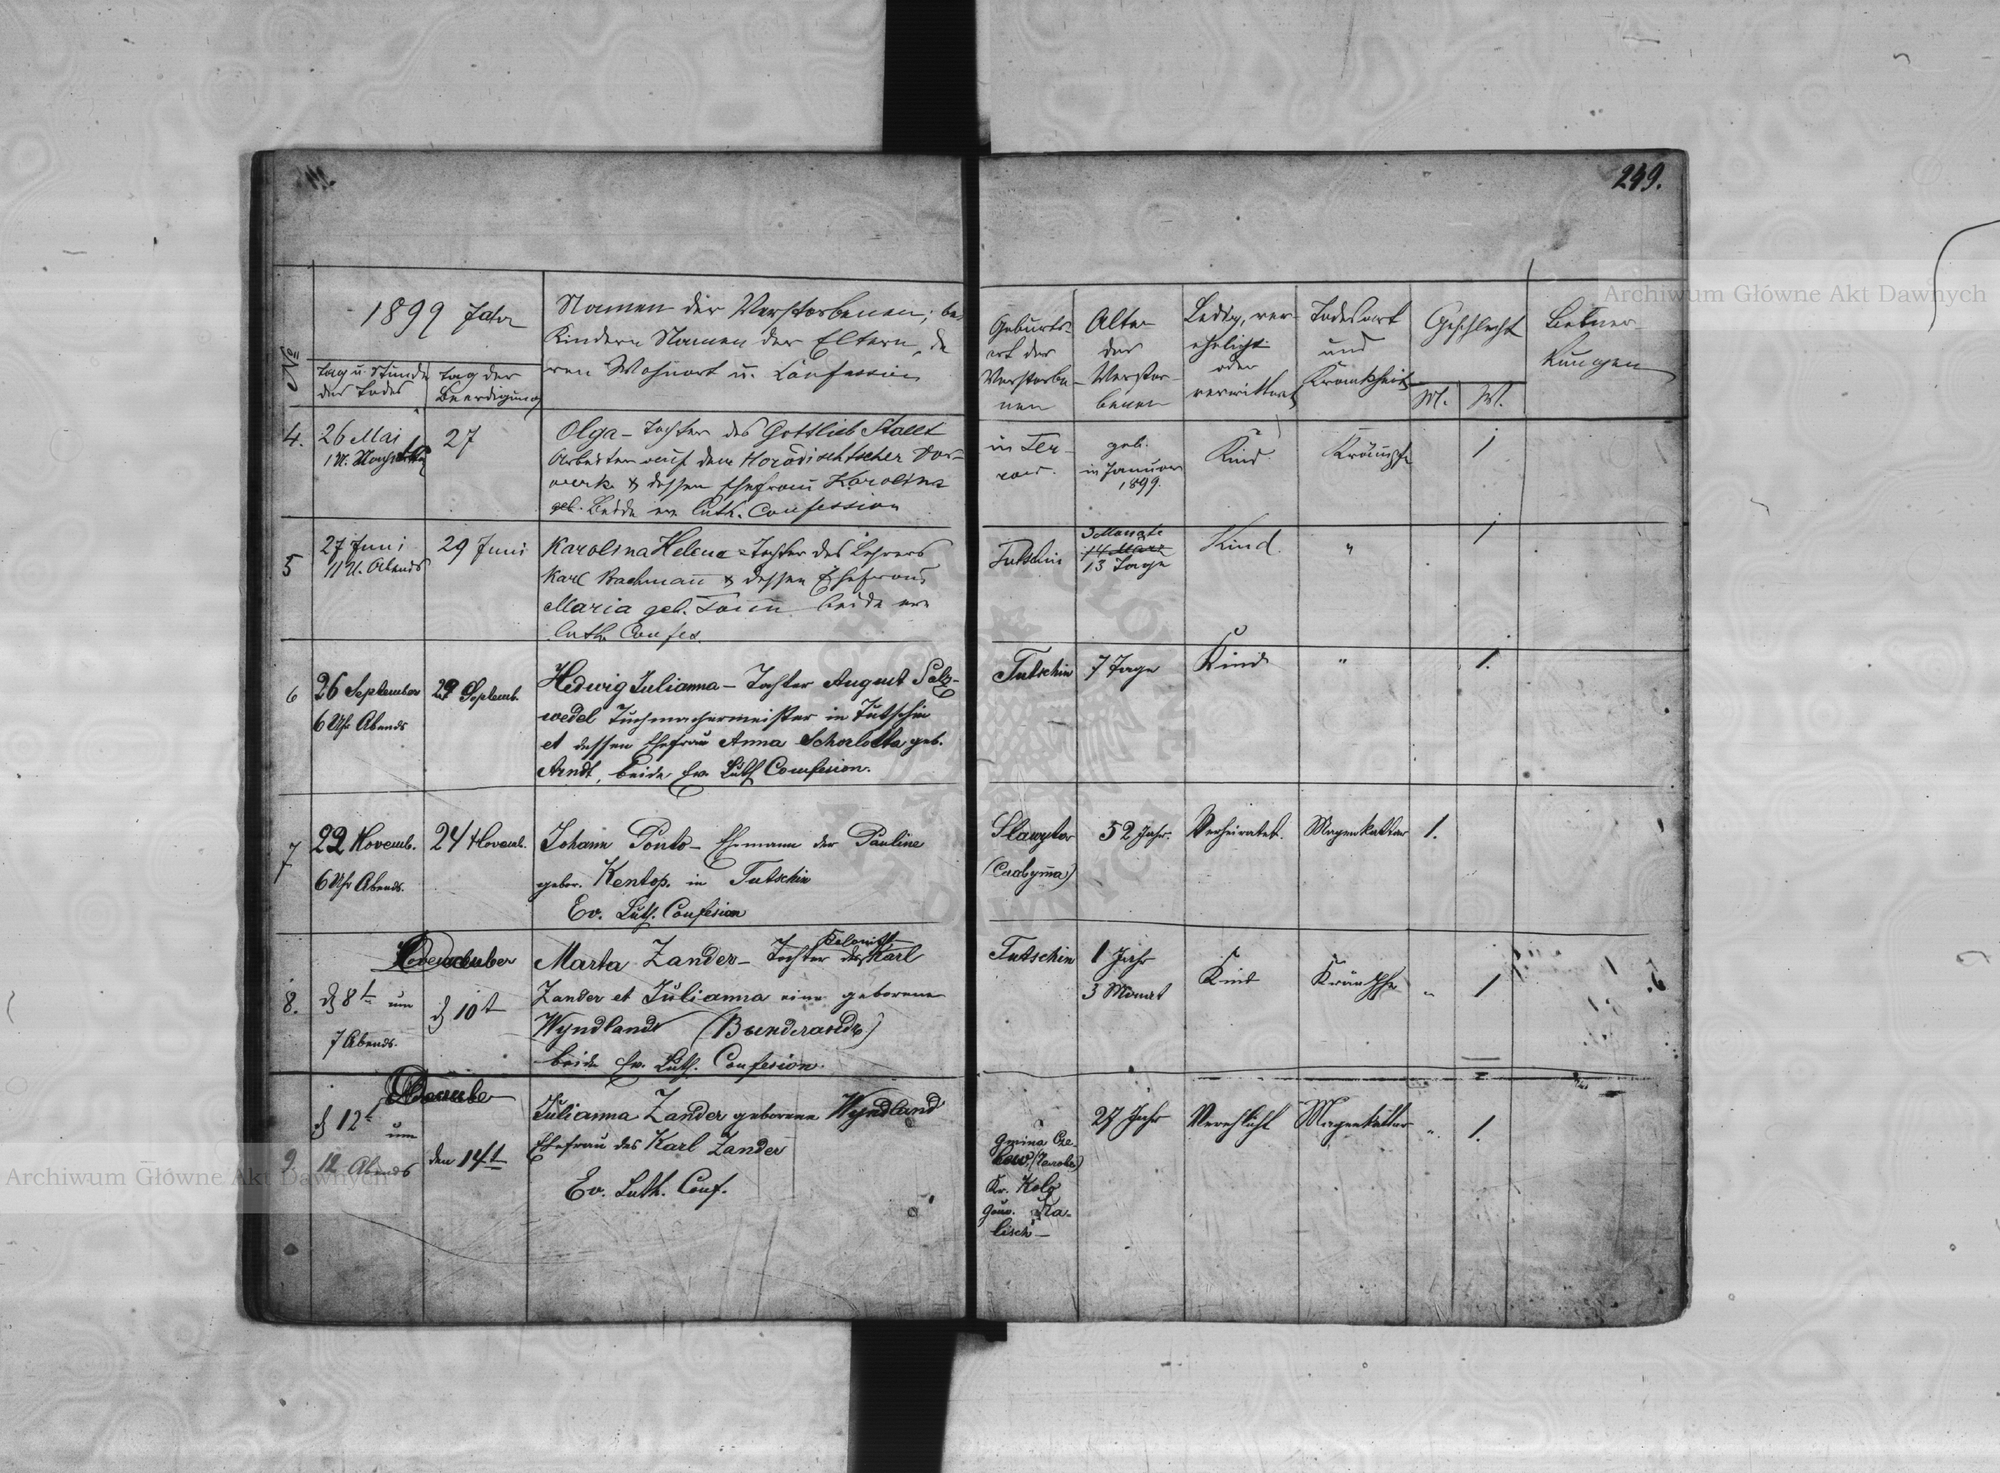 249.
№
1899 Jahr
Tag u. Stunde
des Todes
Tag der
Beerdigung
Namen der Verstorbenen; bei
Kindern Namen der Eltern, de
ren Wohnort u. Confession
Geburts-
ort der
Verstorbe-
nen
Alter
der
Verstor-
benen
Ledig, ver-
ehelicht
oder
verwittwet
Todesart
und
Krankheit
Geschlecht
M.
W.
Bemer-
kungen
4.
26 Mai
1 U. Nachmittag
27
Olga – Tochter des Gottlieb
Arbeiter auf dem Horodischtscher Vor-
werk & dessen Ehefrau Karoline
geb. beide ev. luth. Confession
in
geb.
in Januar
1899.
Kind
Krämpfe
1
5
27 Juni
11 U. Abends
29 Juni
Karolina Helene – Tochter des Lehrers
Karl Bachmann & dessen Ehefrau
Maria geb. beide ev.
luth. Confes.
Tutschin
3 Monate
13 Tage
Kind.
"
1
6
26 September
6 Uhr Abends
29 Septemb.
Hedwig Julianna – Tochter August Salz-
wedel Tuchmachermeister in Tutschin
et dessen Ehefrau Anna Schorlotta geb.
Arndt, beide Ev. Luth Comfesion.
Tutschin
7 Tage
Kind
"
1.
7
22 Novemb.
6 Uhr Abends.
24 Novemb.
Johann Ponto – Ehemann der Pauline
gebor. Kentop. in Tutschin
Ev. Luth. Confesion
52 Jahr.
Verheiratet.
Magenkattar
1.
8.
d 8t um
7 Abends.
d 10t
Kolonist
Marta Zander – Tochter des Karl
Zander et Julianna eine geborene
Wyndland
beide Ev. Luth. Confesion.
Tutschin
1 Jahr
3 Monat
Kind
Krämpfe
"
1
9.
December
d 12t um
12 Abends
den 14t
Julianna Zander geborene Wyndland
Ehefrau des Karl Zander
Ev. Luth. Conf.
Gmina
Kr. Kolo
Gouv. Ka-
lisch –
27 Jahr
Verehlicht
Magenkattar
"
1.
Archiwum Główne Akt Dawnych
Archiwum Główne Akt Dawnych